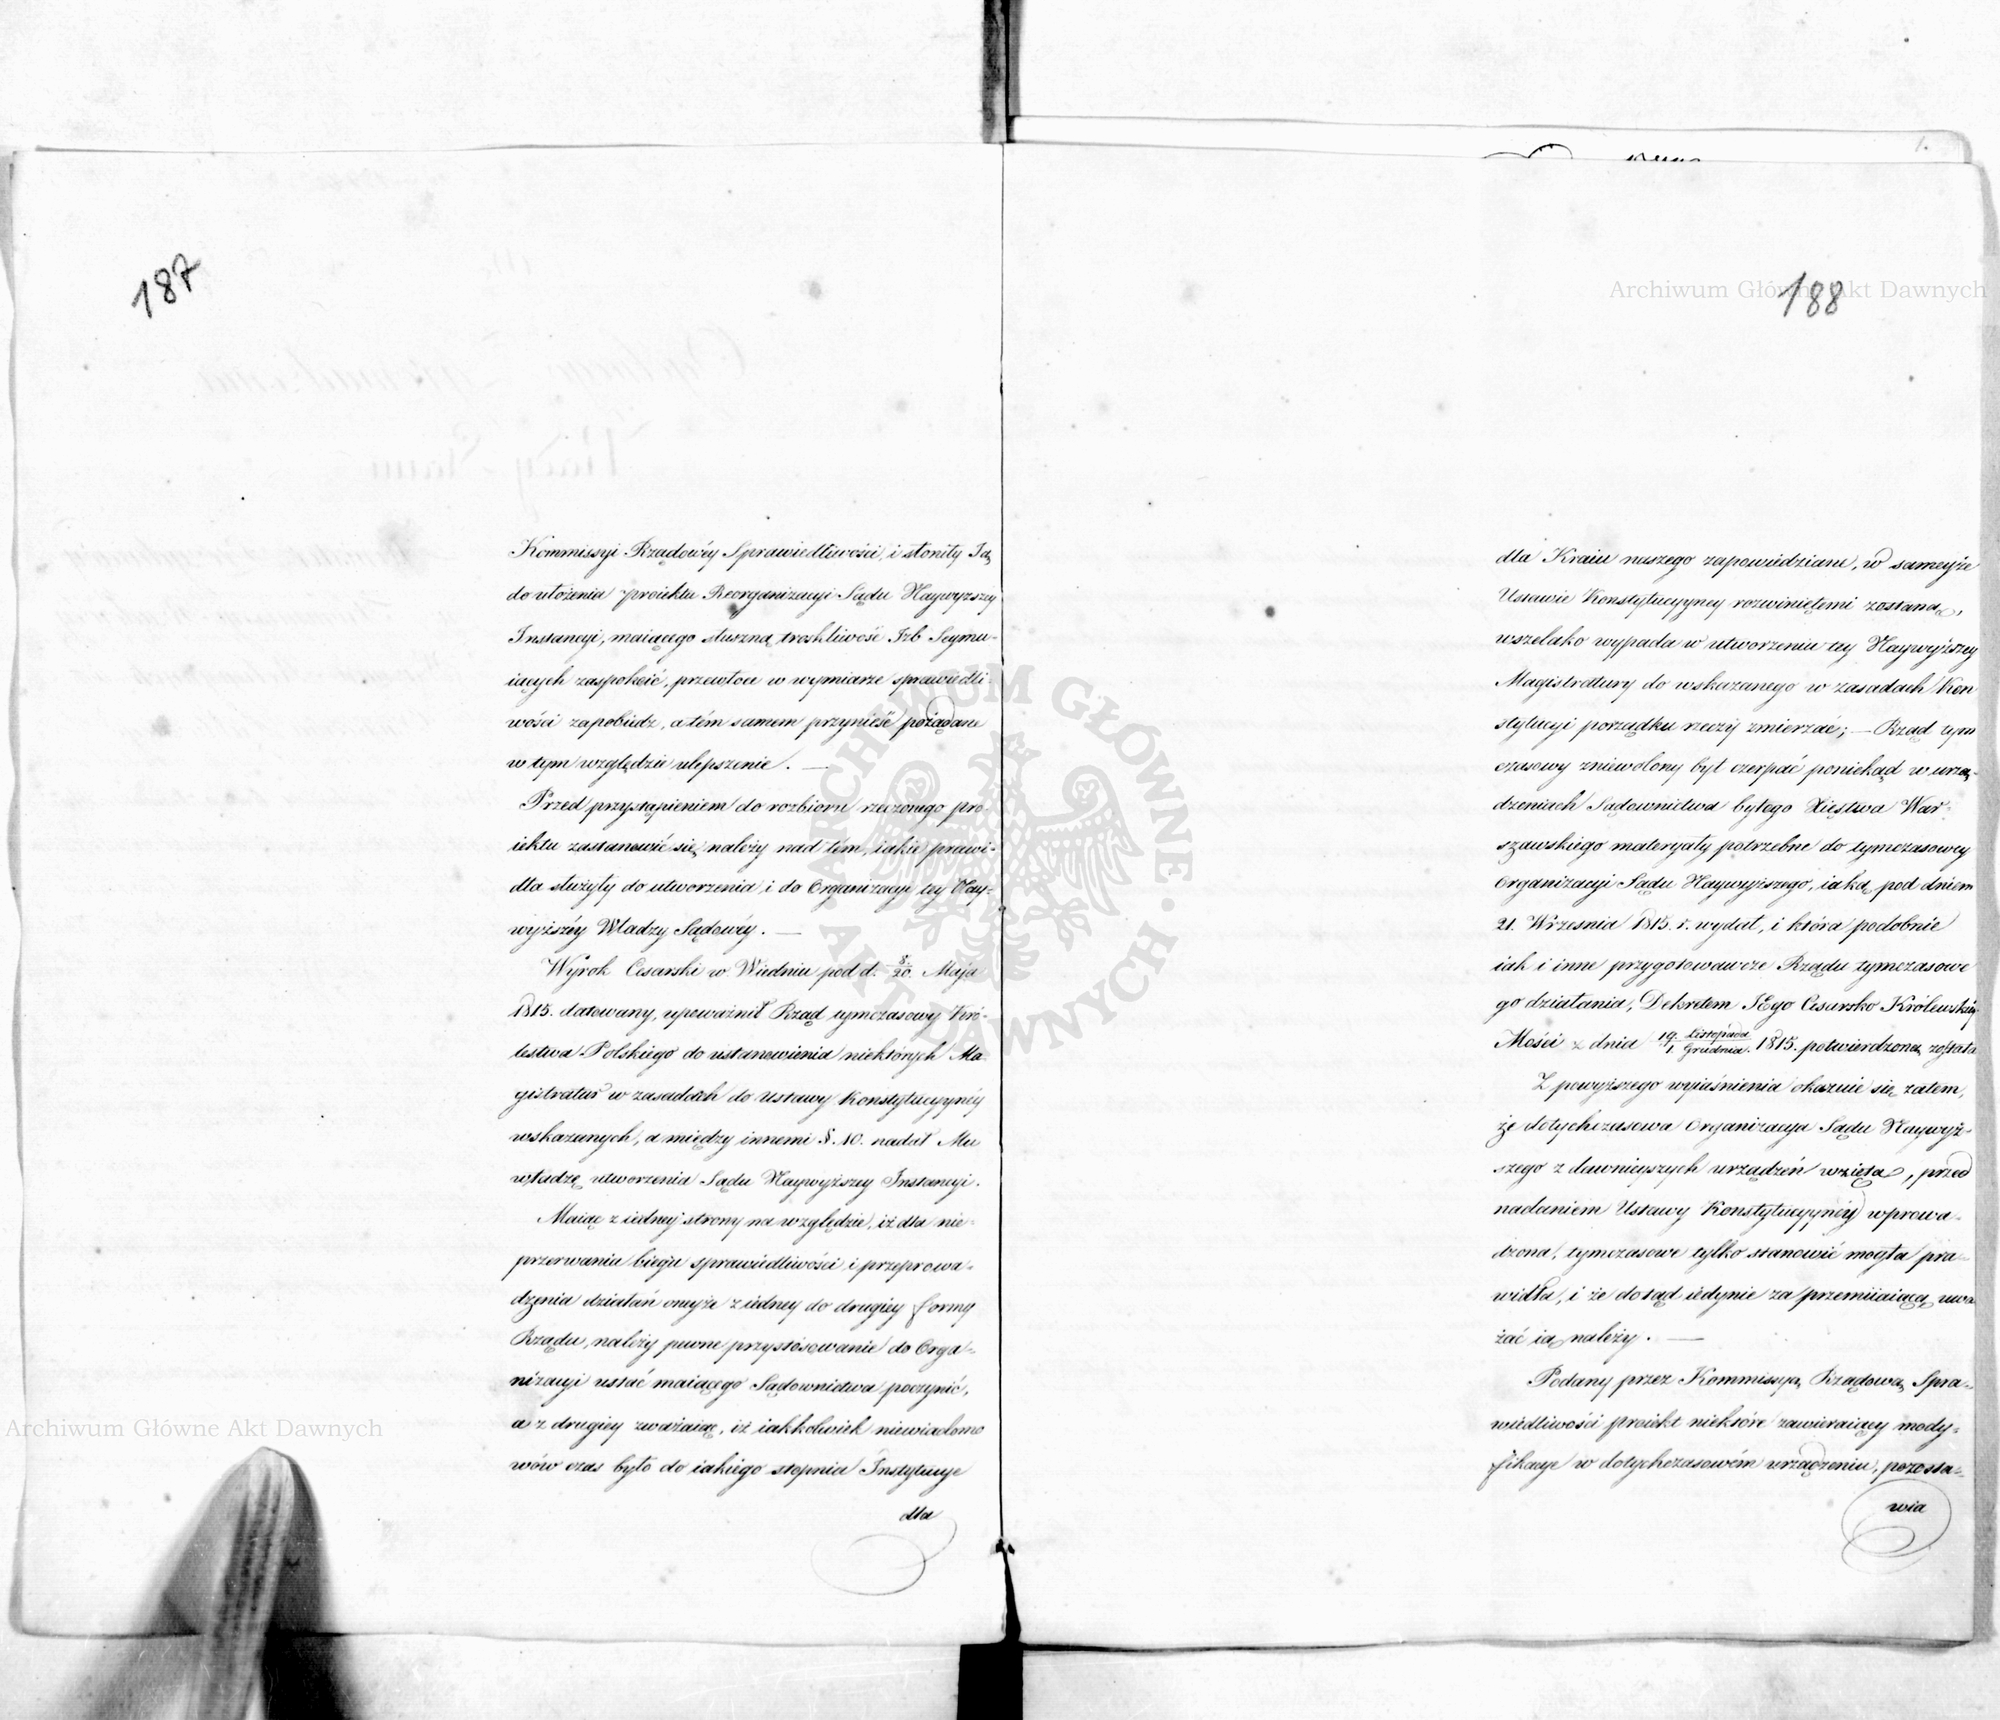 187
Kommissyi Rządowéy Sprawiedliwości, i skoniły Ją
do ułożenia proiektu Reorganizacyi Sądu Naywyższey
Instancyi, maiącego słuszną troskliwość Izb Seymu-
iących zaspokoić, przewłoce w wymiarze sprawiedli
wości zapobiedz, a tém samem przynieść pożądane
w tym względzie ulepszenie. —
Przed przystąpieniem do rozbioru rzeczonego pro
iektu zastanowić się należy nad tém, iakie prawi-
dła służyły do utworzenia, i do Organizacyi tey Nay-
wyższéy Władzy Sądowéy. —
Wyrok Cesarski w Wiedniu pod d. 8/20. Maja
1815. datowany, upoważnił Rząd tymczasowy Kró-
lestwa Polskiego do ustanowienia niektórych Ma-
gistratur w zasadach do Ustawy Konstytucyynéy
wskazanych, a między innemi §. 10. nadał Mu
władzę utworzenia Sądu Naywyższey Instancyi.
Maiąc z iedney strony na względzie, iż dla nie-
przerwania biegu sprawiedliwości, i przeprowa-
dzenia działań oneyże z iedney do drugiey formy
Rządu, należy pewne przystosowanie do Orga-
nizacyi ustać maiącego Sądownictwa poczynić,
a z drugiey zważaiąc, iż iakkolwiek niewiadomo
wów czas było do iakiego stopnia Instytucye
dla
188
dla Kraiu naszego zapowiedziane, w sameyże
Ustawie Konstytucyyney rozwiniętemi zostaną,
wszelako wypada w utworzeniu tey Naywyższey
Magistratury do wskazanego w zasadach Kon
stytucyi porządku rzeczy zmierzać; — Rząd tym
czasowy zniewolony był czerpać poniekąd w urzą-
dzeniach Sądownictwa byłego Xięstwa War-
szawskiego materyały potrzebne do tymczasowey
Organizacyi Sądu Naywyższego, iaką pod dniem
21. Września 1815. r. wydał, i która podobnie
iak i inne przygotowawcze Rządu tymczasowe
go działania, Dekretem JEgo Cesarsko Królewskiéy
Mości z dnia 19. Listopada/1. Grudnia. 1815. potwierdzoną została
Z powyższego wyiaśnienia okazuie się zatem,
że dotychczasowa Organizacya Sądu Naywyż-
szego z dawnieyszych urządzeń wzięta, przed
nadaniem Ustawy Konstytucyynéy wprowa-
dzona, tymczasowe tylko stanowić mogła pra-
widła, i że dotąd iedynie za przemiiaiącą uwa
żać ią należy. —
Podany przez Kommissyą Rządową Spra-
wiedliwości proiekt niektóre zawieraiący mody-
fikacye w dotychczasowém urządzeniu, pozosta-
wia
Archiwum Główne Akt Dawnych
Archiwum Główne Akt Dawnych
ARCHIWUM GŁÓWNE · AKT DAWNYCH ·